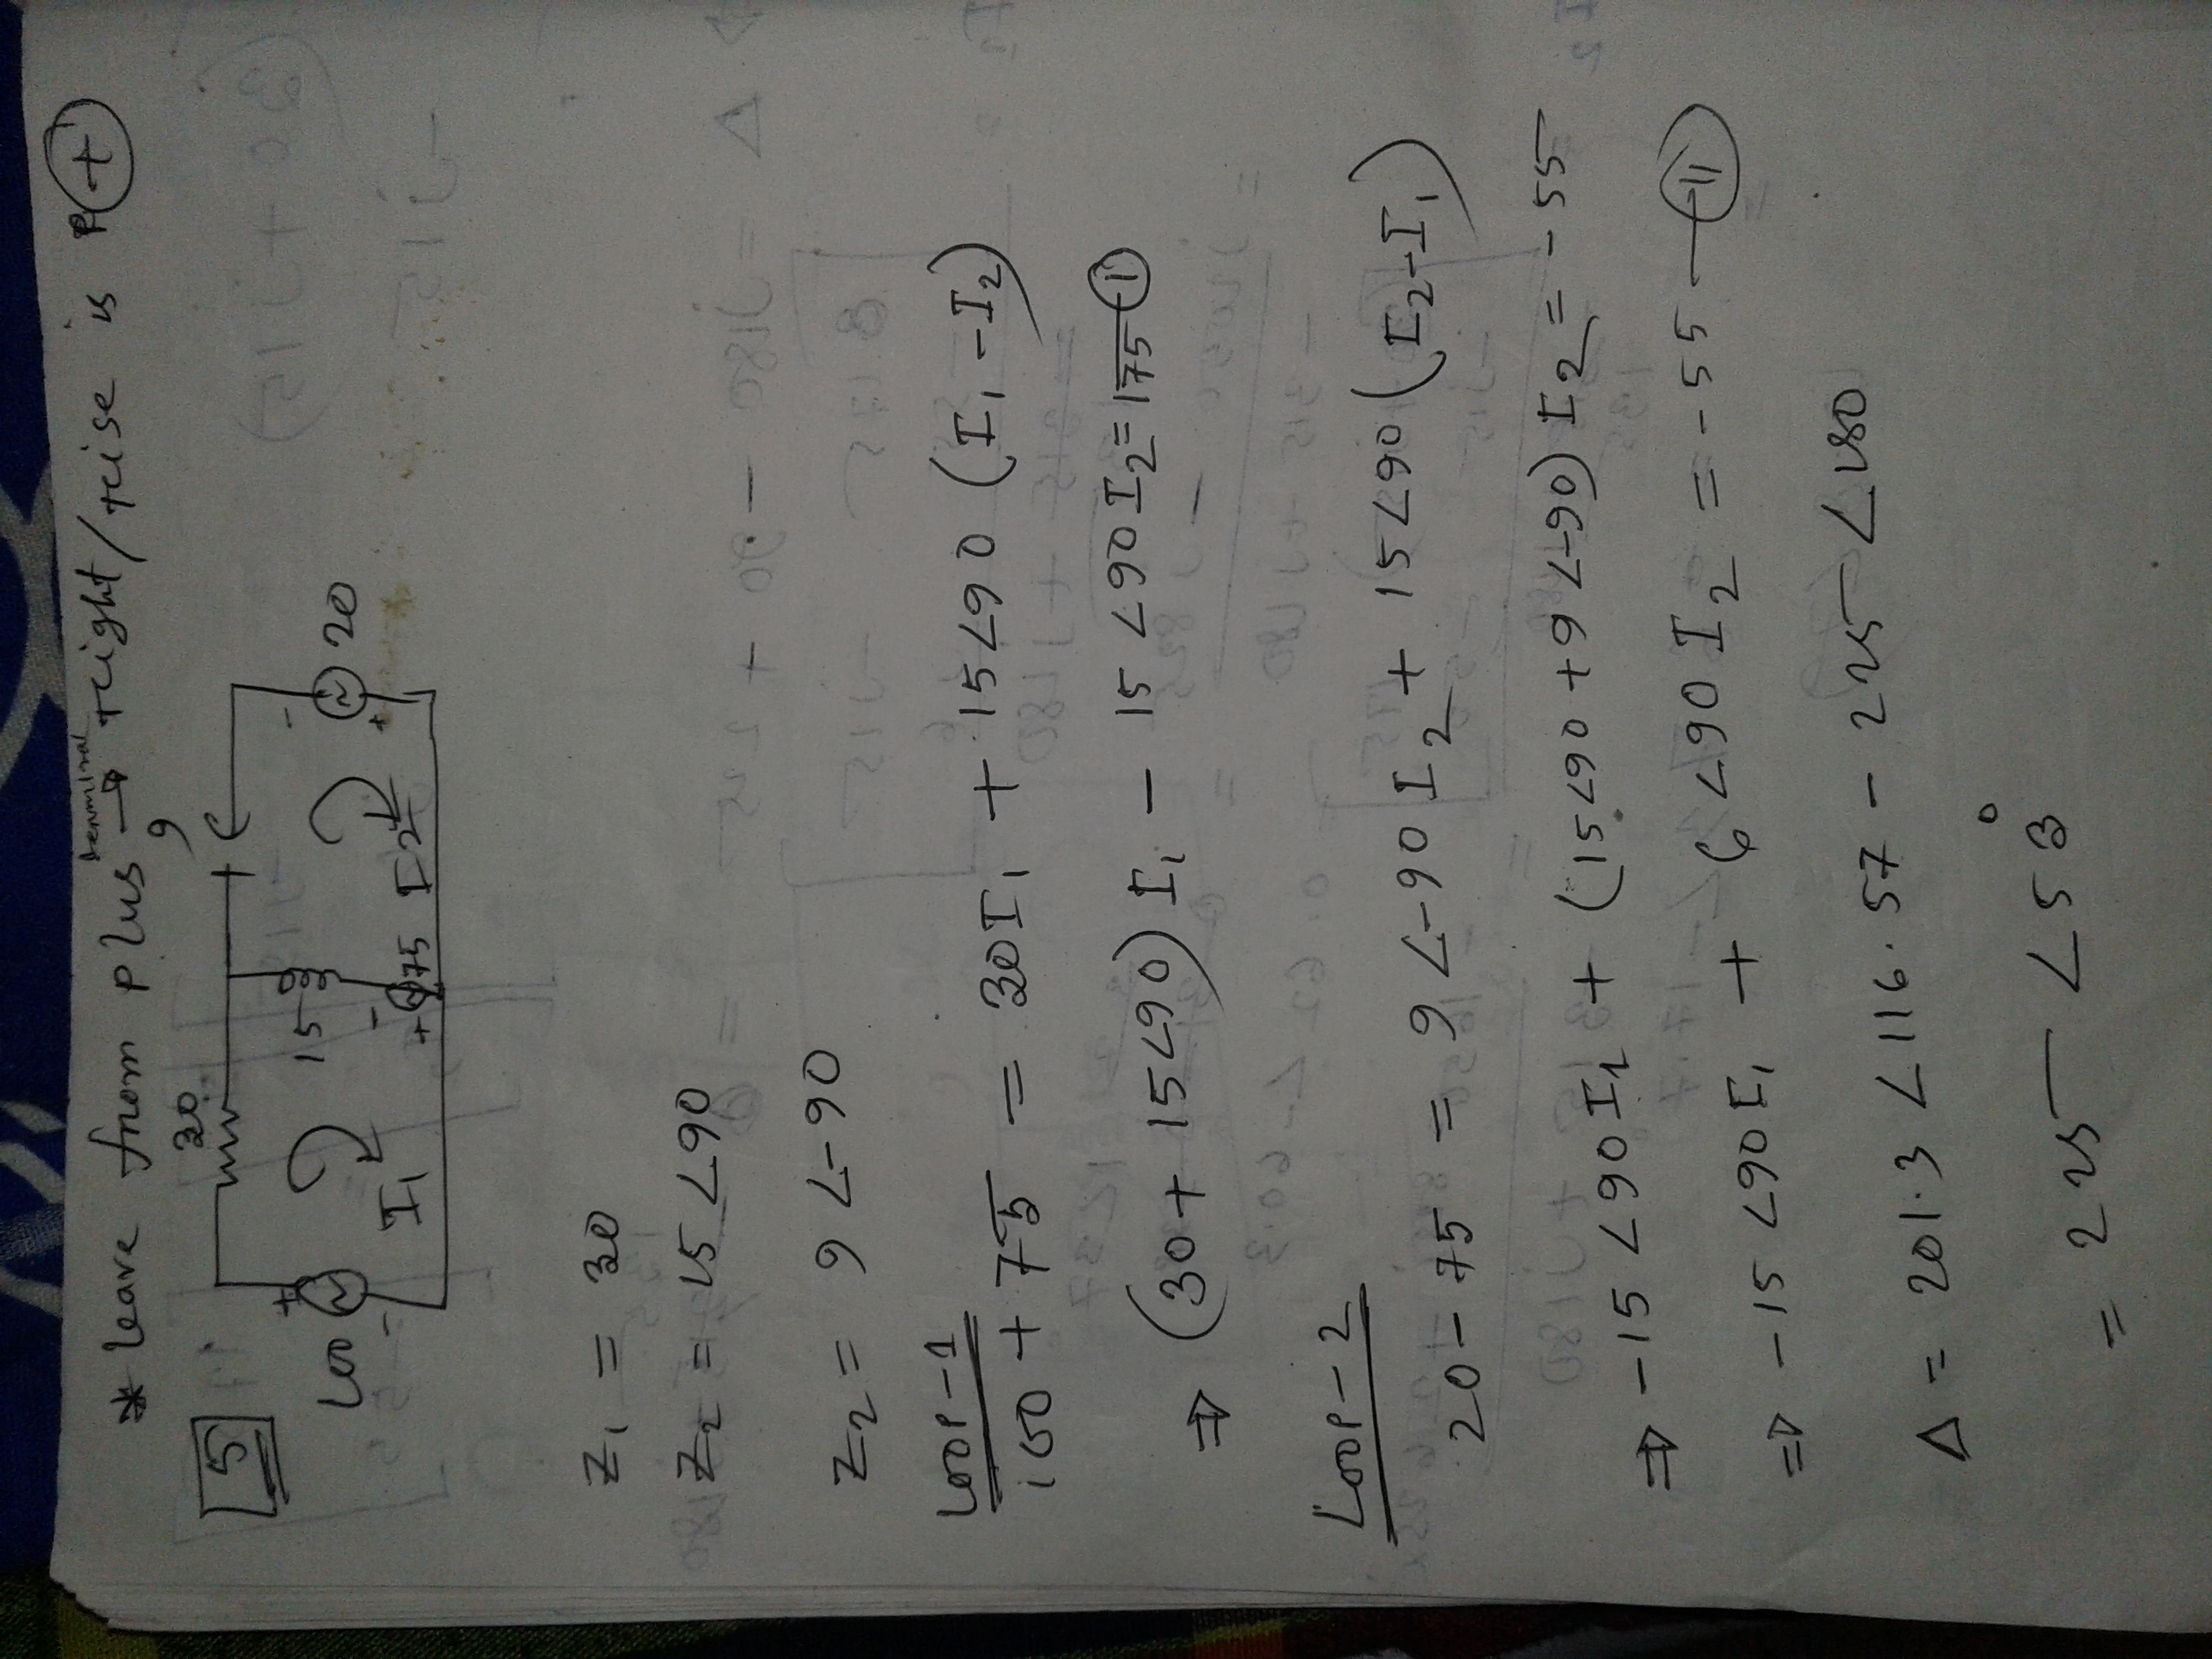 * leave from plus terminal → reight/reise is (+)
5
30
9
100
+
-
I₁
15
-
+
75
I2
-
+
20
Z₁ = 30
Z₂ = 15 ∠90
Z₂ = 9 ∠-90
Loop-1
100 + 75 = 30I₁ + 15∠90 (I₁ - I₂)
⇒ (30 + 15∠90) I₁ - 15 ∠90 I₂ = 175 — (i)
Loop-2
20 - 75 = 9 ∠-90 I₂ + 15∠90 (I₂ - I₁)
⇒ -15 ∠90 I₁ + (15∠90 + 9∠-90) I₂ = -55
⇒ -15 ∠90 I₁ + 6 ∠90 I₂ = -55 — (ii)
Δ = 201.3 ∠116.57 - 225 ∠180
= 225 ∠53°